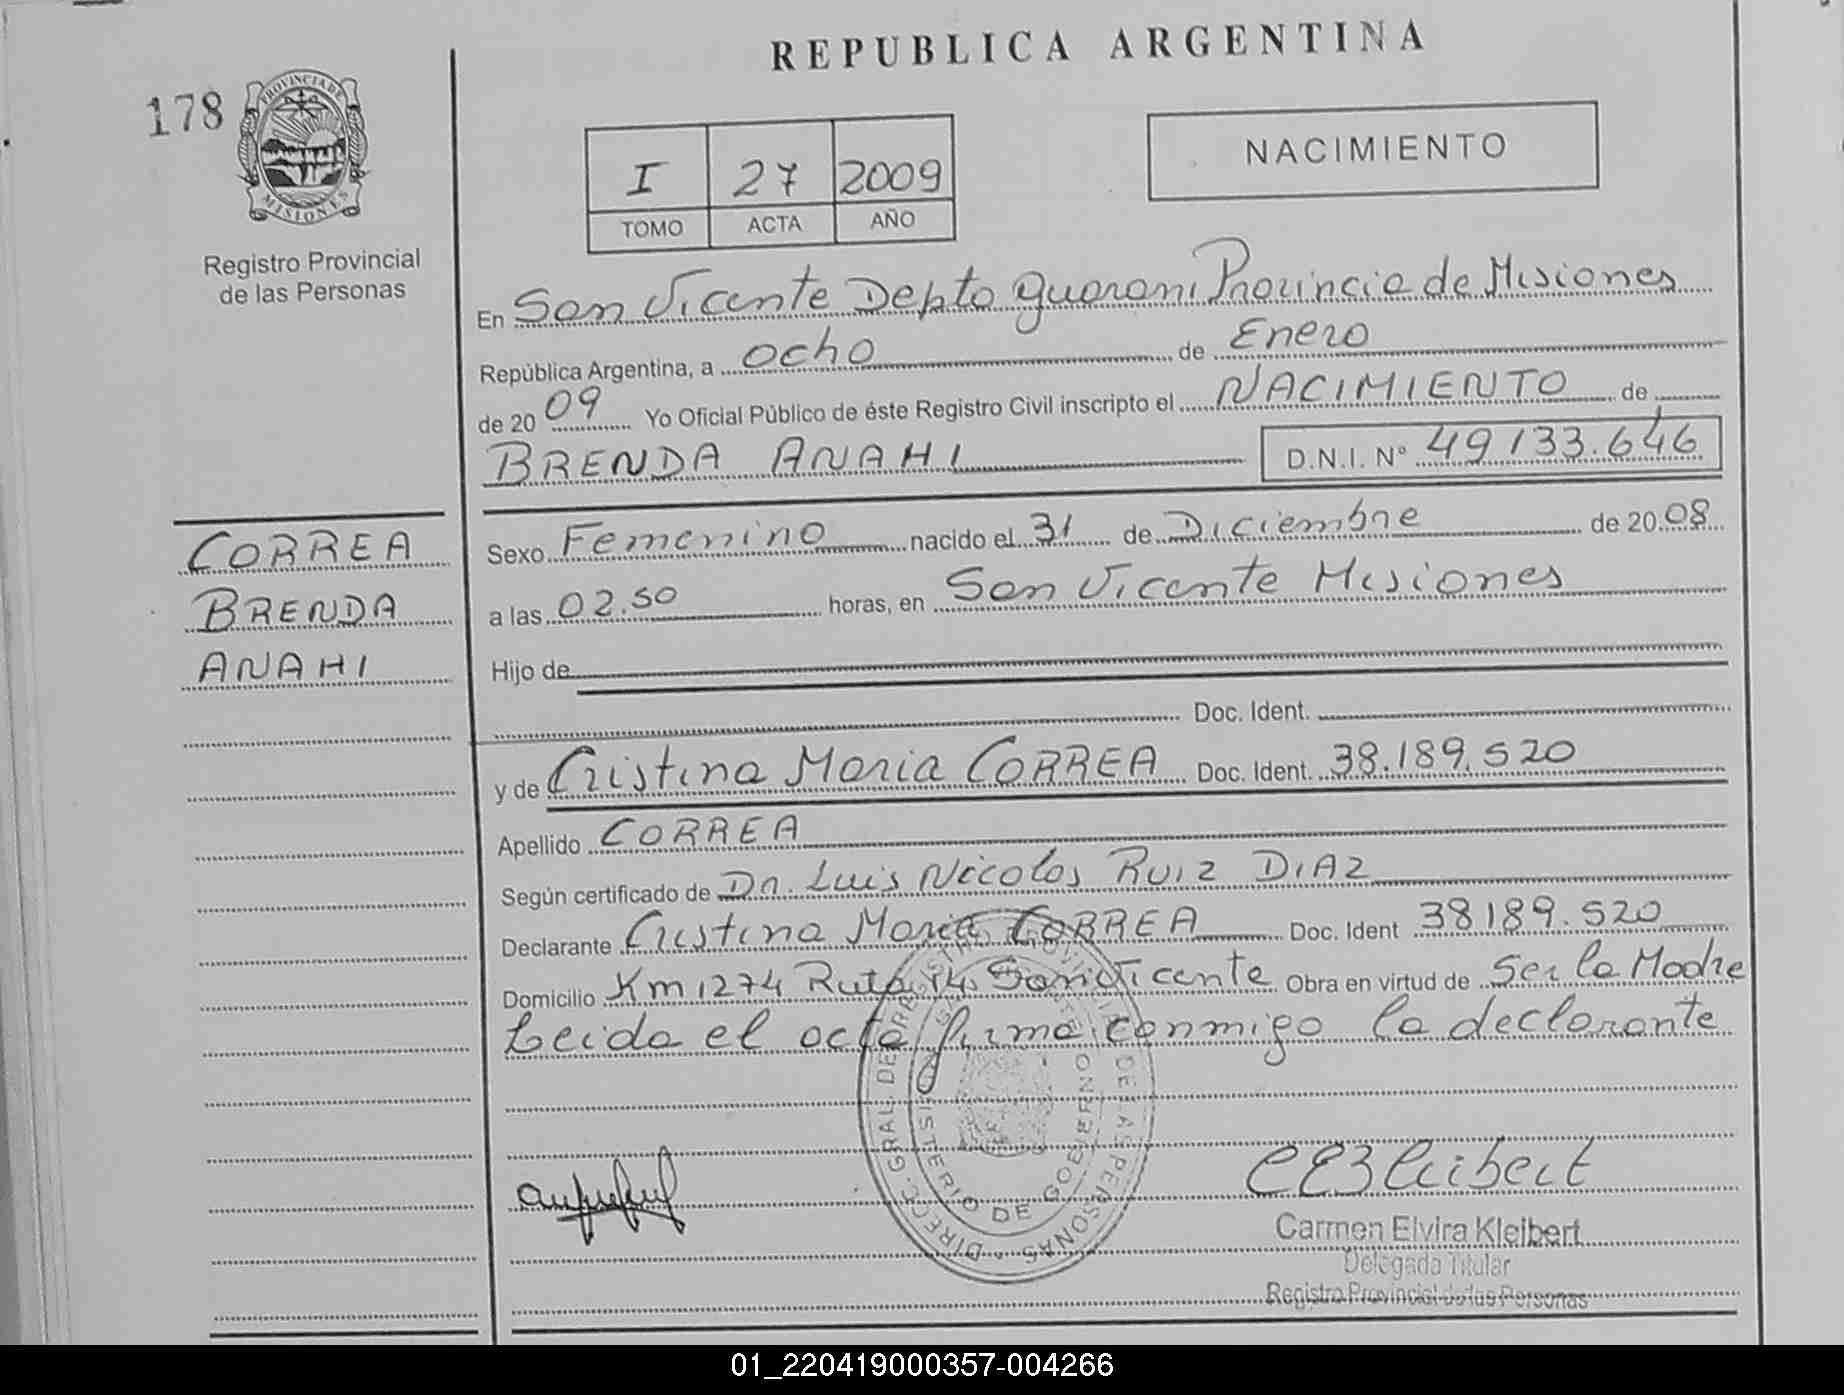 REPUBLICA ARGENTINA
178
PROVINCIA DE
MISIONES
Registro Provincial
de las Personas
I 27 2009
TOMO ACTA AÑO
NACIMIENTO
En San Vicente Depto Guarani Provincia de Misiones
República Argentina, a ocho de Enero
de 20 09 Yo Oficial Público de éste Registro Civil inscripto el NACIMIENTO de
BRENDA ANAHI D.N.I. Nº 49133.646
CORREA
BRENDA
ANAHI
Sexo Femenino nacido el 31 de Diciembre de 20 08
a las 02.50 horas, en San Vicente Misiones
Hijo de
Doc. Ident.
y de Cristina Maria CORREA Doc. Ident. 38.189.520
Apellido CORREA
Según certificado de Dr. Luis Nicolas RUIZ DIAZ
Declarante Cristina Maria CORREA Doc. Ident 38189.520
Domicilio Km 1274 Ruta 14 San Vicente Obra en virtud de Ser la Madre
Leida el acta firma conmigo la declarante
DIRECC. GRAL. DE REGISTRO PROVINCIAL DE LAS PERSONAS
MINISTERIO DE GOBIERNO
CEKleibert
Carmen Elvira Kleibert
Delegada Titular
Registro Provincial de las Personas
01_220419000357-004266